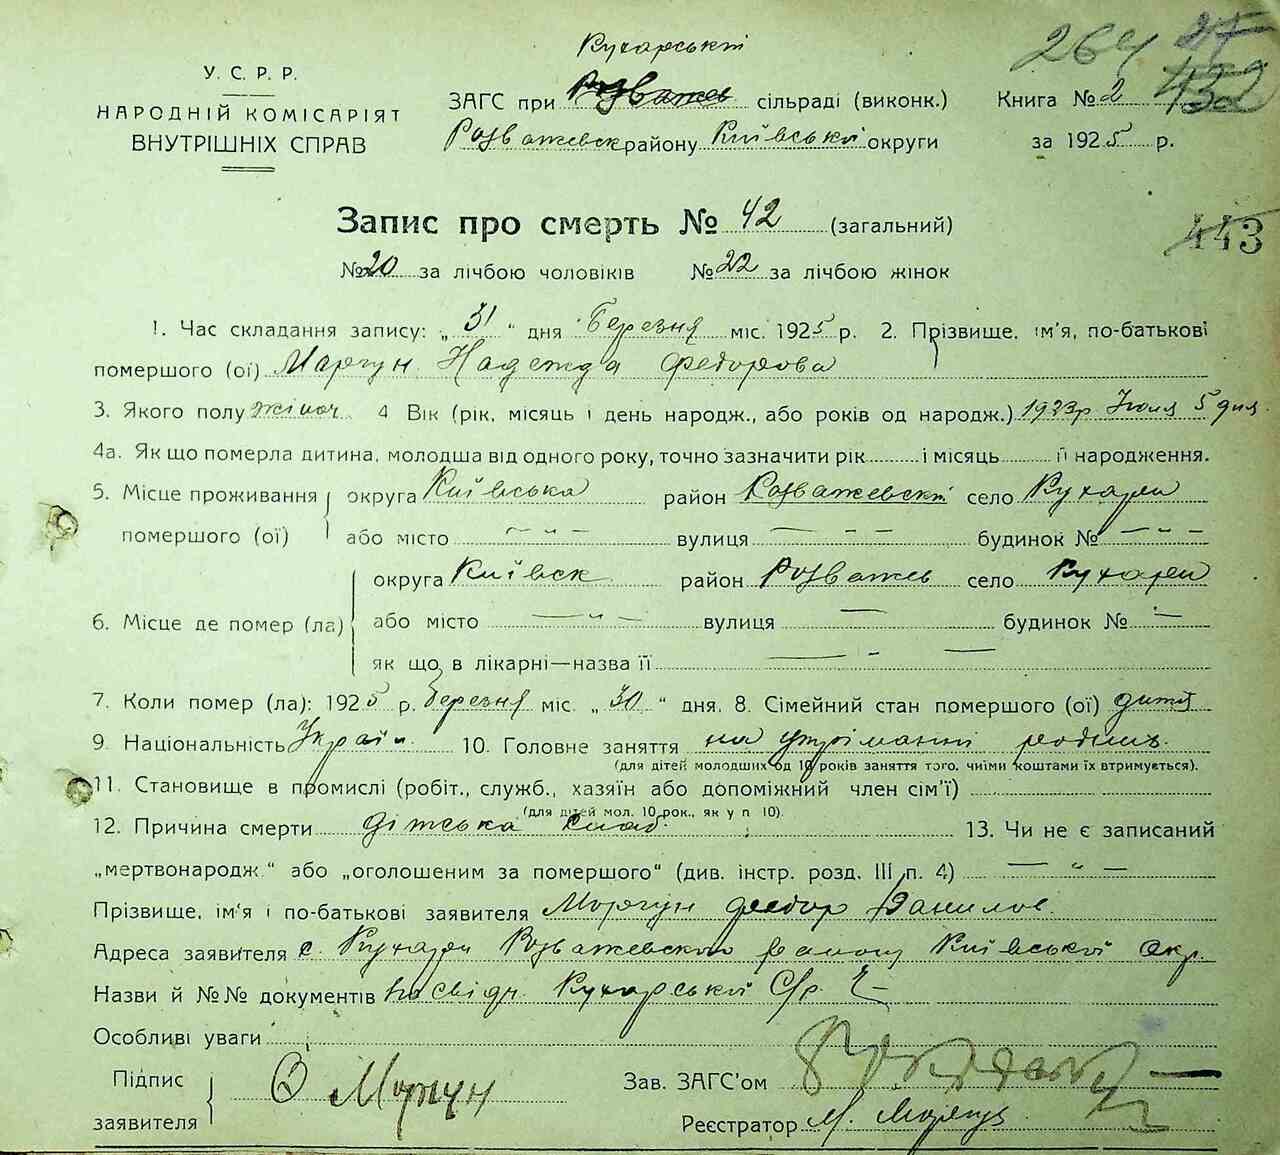 Кухарській
264 27
432
У. С. Р. Р.
НАРОДНІЙ КОМІСАРІЯТ
ВНУТРІШНІХ СПРАВ
ЗАГС при Розважев сільраді (виконк.)
Розважевск району Київської округи
Книга № 2
за 1925 р.
Запис про смерть № 42 (загальний)
443
№ 20 за лічбою чоловіків № 22 за лічбою жінок
1. Час складання запису: „31" дня Березня міс. 1925 р. 2. Прізвище, ім'я, по-батькові
помершого (ої) Моргун Надежда Федорова
3. Якого полу жіноч 4 Вік (рік, місяць і день народж., або років од народж.) 1923р Июля 5 дня
4а. Як що померла дитина, молодша від одного року, точно зазначити рік і місяць її народження.
5. Місце проживання округа Київська район Розважевскі село Кухари
помершого (ої) або місто — " — вулиця — - - будинок № — " —
округа Київск район Розважев село Кухари
6. Місце де помер (ла) або місто — " — вулиця — будинок № —
як що в лікарні—назва її — - —
7. Коли помер (ла): 1925 р. березня міс. „30" дня. 8. Сімейний стан помершого (ої) дитя
9. Національність Україн. 10. Головне заняття на утріманні родит.
(для дітей молодших од 10 років заняття того, чиїми коштами їх втримується).
11. Становище в промислі (робіт., служб., хазяїн або допоміжний член сім'ї)
(для дітей мол. 10 рок., як у п 10).
12. Причина смерти дітська слаб. 13. Чи не є записаний
„мертвонародж." або „оголошеним за помершого" (див. інстр. розд. III п. 4) — " —
Прізвище, ім'я і по-батькові заявителя Моргун Федор Данилов.
Адреса заявителя с. Кухари Розважевского району Київської окр.
Назви й №№ документів посвідч. Кухарської С/р.
Особливі уваги
Підпис
заявителя Моргун
Зав. ЗАГС'ом
Реєстратор М. Моргун